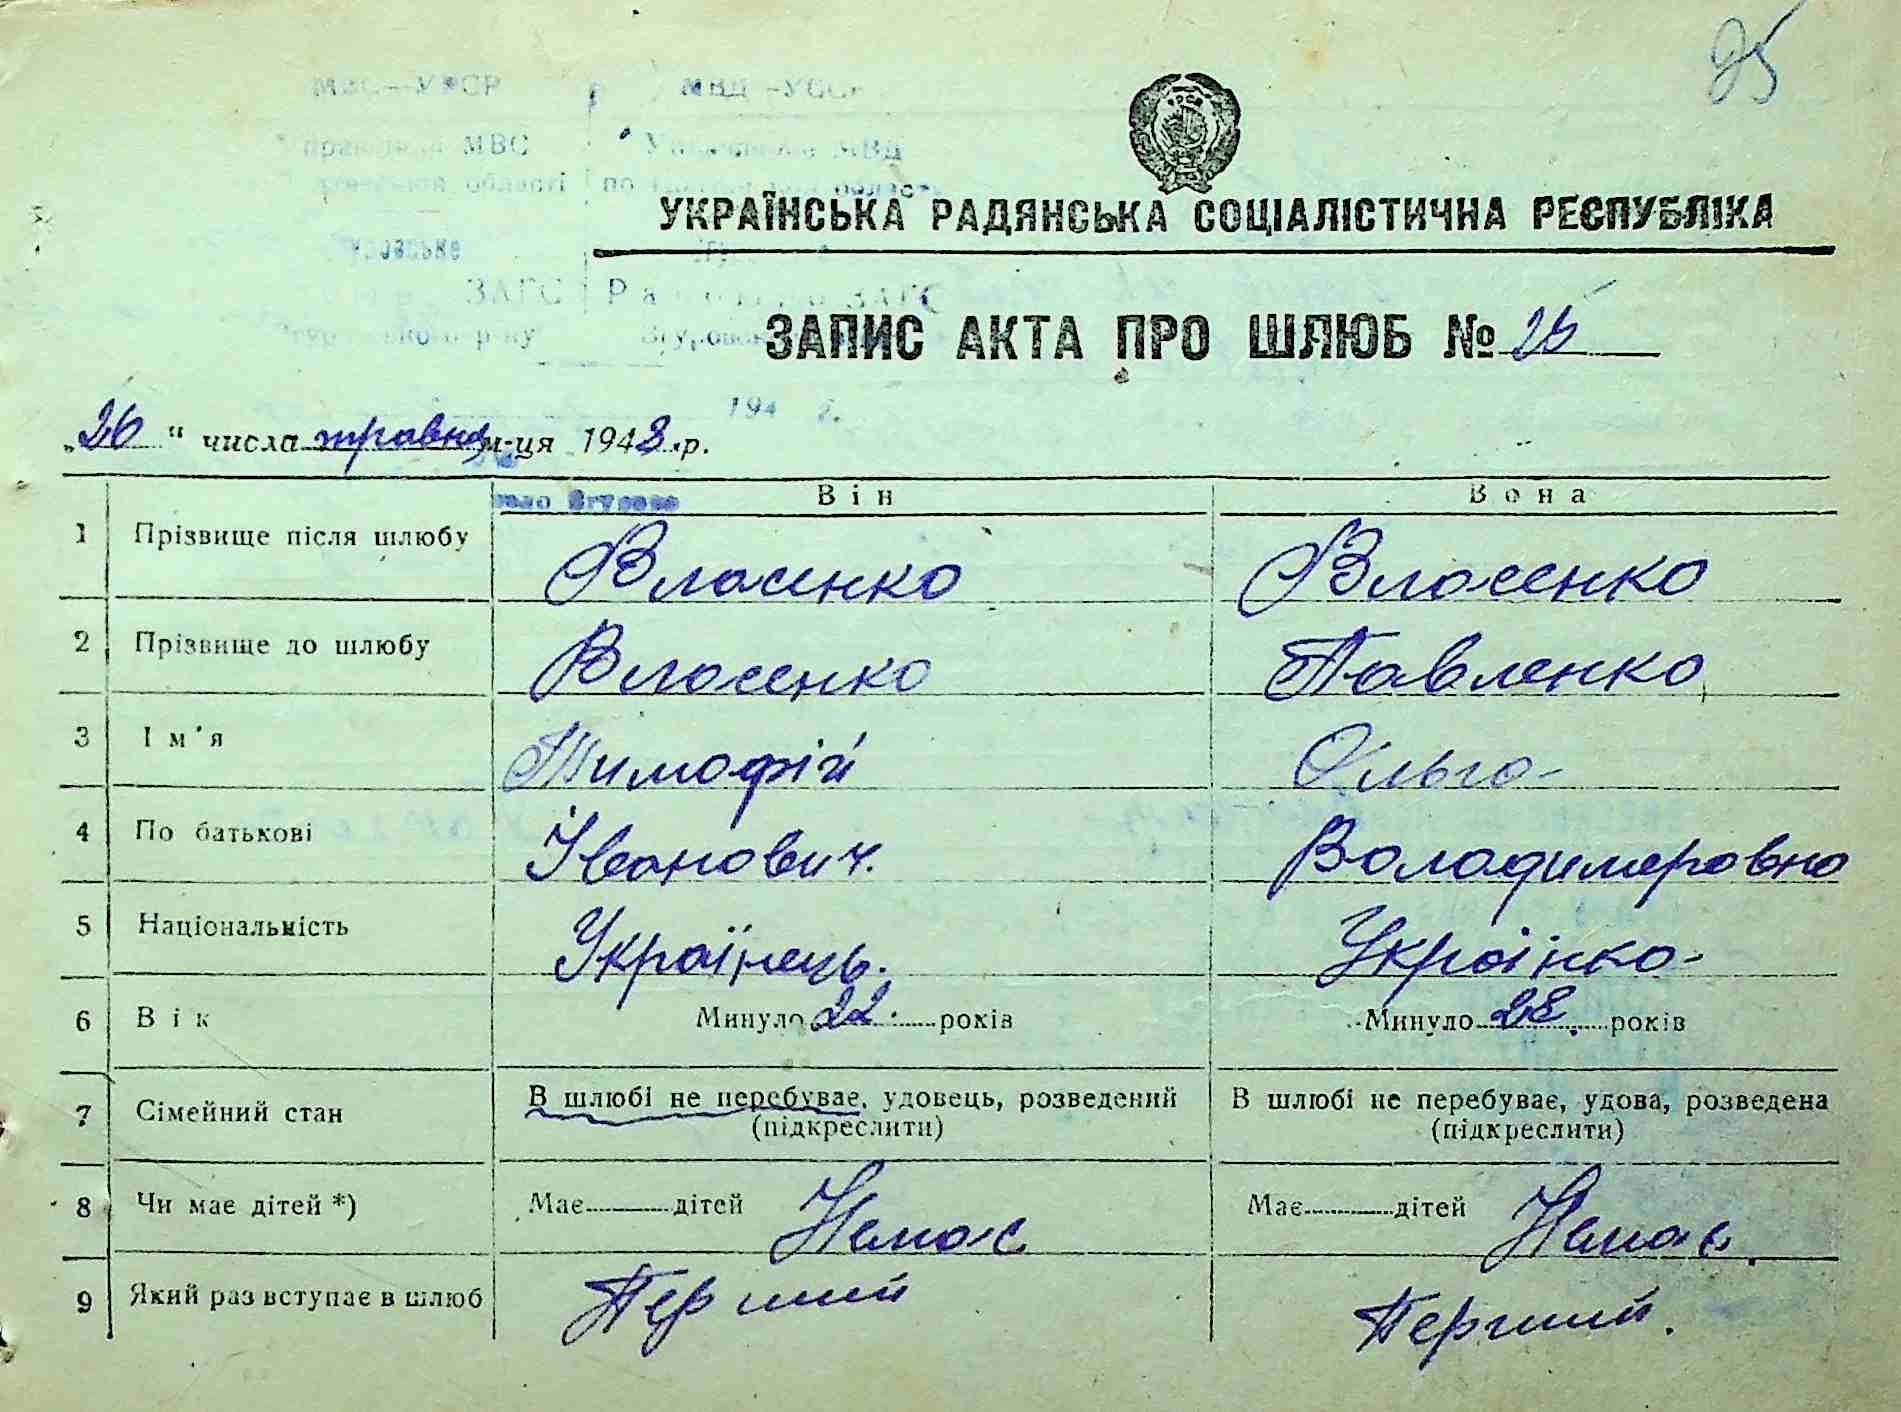 25
МВС—УРСР МВД —УССР
МВС Управление МВД
області по области
ЗАГС ЗАГС
УКРАЇНСЬКА РАДЯНСЬКА СОЦІАЛІСТИЧНА РЕСПУБЛІКА
ЗАПИС АКТА ПРО ШЛЮБ № 25
194 г.
„26" числа травня м-ця 1948 р.
Він Вона
1 Прізвище після шлюбу Власенко Власенко
2 Прізвище до шлюбу Власенко Павленко
3 Ім'я Тимофій Ольга
4 По батькові Іванович. Володимеровна
5 Національність Українець. Українка
6 Вік Минуло 22. років Минуло 28. років
7 Сімейний стан В шлюбі не перебуває, удовець, розведений В шлюбі не перебуває, удова, розведена
(підкреслити) (підкреслити)
8 Чи має дітей *) Має дітей Немає Має дітей Немає.
9 Який раз вступає в шлюб Перший Перший.